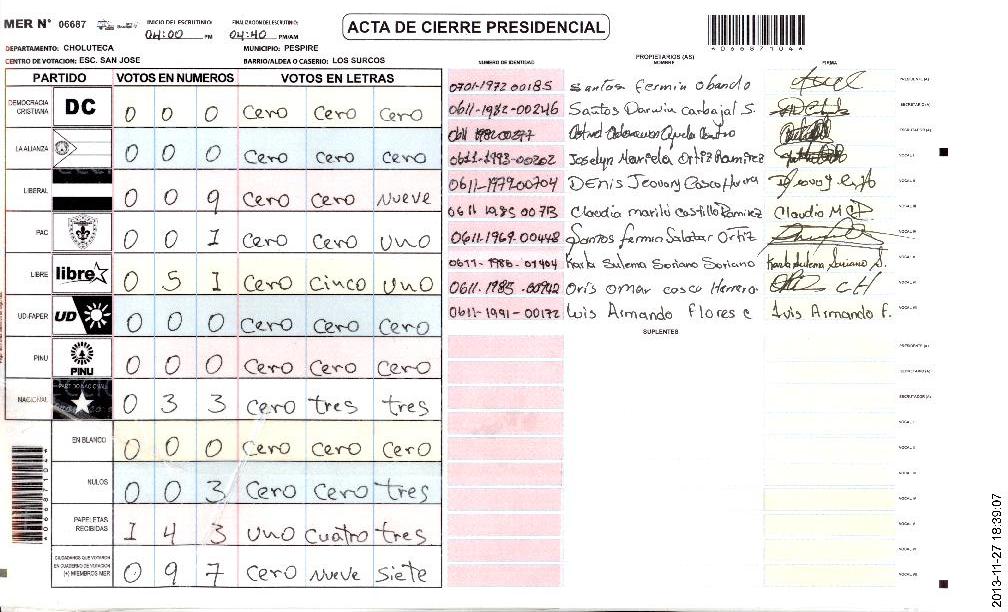 MER N° 06687 INICIO DEL ESCRUTINIO: 04:00 PM FINALIZACION DEL ESCRUTINIO: 04:40 PM/AM ACTA DE CIERRE PRESIDENCIAL
DEPARTAMENTO: CHOLUTECA MUNICIPIO: PESPIRE
CENTRO DE VOTACION: ESC. SAN JOSE BARRIO/ALDEA O CASERIO: LOS SURCOS
PARTIDO VOTOS EN NUMEROS VOTOS EN LETRAS
DEMOCRACIA CRISTIANA DC 0 0 0 Cero Cero Cero
LA ALIANZA 0 0 0 Cero Cero Cero
LIBERAL 0 0 9 Cero Cero Nueve
PAC 0 0 1 Cero Cero Uno
LIBRE libre 0 5 1 Cero Cinco Uno
UD-FAPER UD 0 0 0 Cero Cero Cero
PINU PINU 0 0 0 Cero Cero Cero
NACIONAL PARTIDO NACIONAL 0 3 3 Cero tres tres
EN BLANCO 0 0 0 Cero Cero Cero
NULOS 0 0 3 Cero Cero tres
PAPELETAS RECIBIDAS 1 4 3 Uno Cuatro tres
CIUDADANOS QUE VOTARON EN CUADERNO DE VOTACION (+) MIEMBROS MER 0 9 7 Cero Nueve Siete
PROPIETARIOS (AS)
NUMERO DE IDENTIDAD NOMBRE FIRMA
0701-1972 00185 Santos fermin Obando PRESIDENTE (A)
0611-1982-00246 Santos Darwin Carbajal S. SECRETARIO (A)
ESCRUTADOR (A)
0611-1993-00202 Joselyn Mariela Ortiz Ramirez VOCAL I
0611-1979 00704 Denis Jeovany Casco VOCAL II
0611 1985 00713 Claudia marilú Castillo Ramirez Claudia M VOCAL III
0611-1969-00448 Santos fermin Salazar Ortiz VOCAL IV
0611-1986-01404 Karla Sulema Soriano Soriano Karla Sulema Soriano S.
0611-1985-00942 Oris omar casco Herrera CH
0611-1991-00172 Luis Armando Flores c Luis Armando F.
SUPLENTES
PRESIDENTE (A)
SECRETARIO (A)
ESCRUTADOR (A)
VOCAL I
VOCAL II
*06687104*
2013-11-27 18:39:07